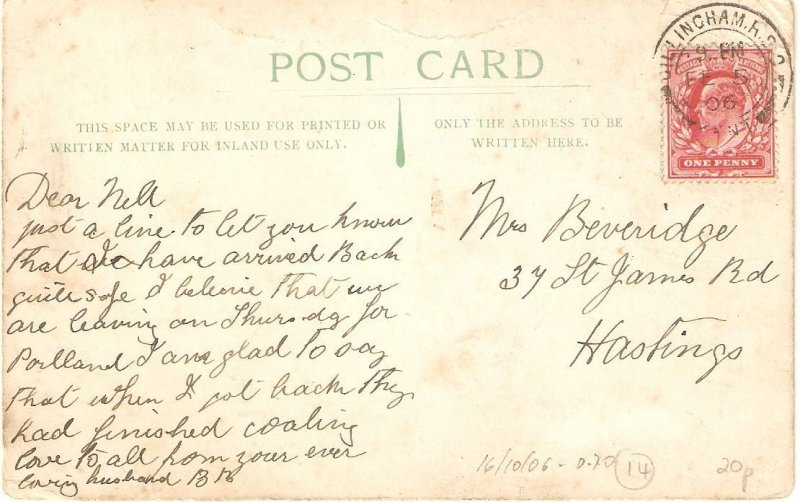 POST CARD
THIS SPACE MAY BE USED FOR PRINTED OR
WRITTEN MATTER FOR INLAND USE ONLY.
ONLY THE ADDRESS TO BE
WRITTEN HERE.
GILLINGHAM.R.S.O.
9. PM
FE 5
06
KENT
ONE PENNY
Dear Nell
just a line to let you know
that I have arrived Back
quite safe I believe that we
are leaving on Thursday for
Portland I am glad to say
that when I got back they
had finished coaling
love to all from your ever
loving husband
Mrs Beveridge
37 St James Rd
Hastings
16/10/06 - 0.70
14
20p